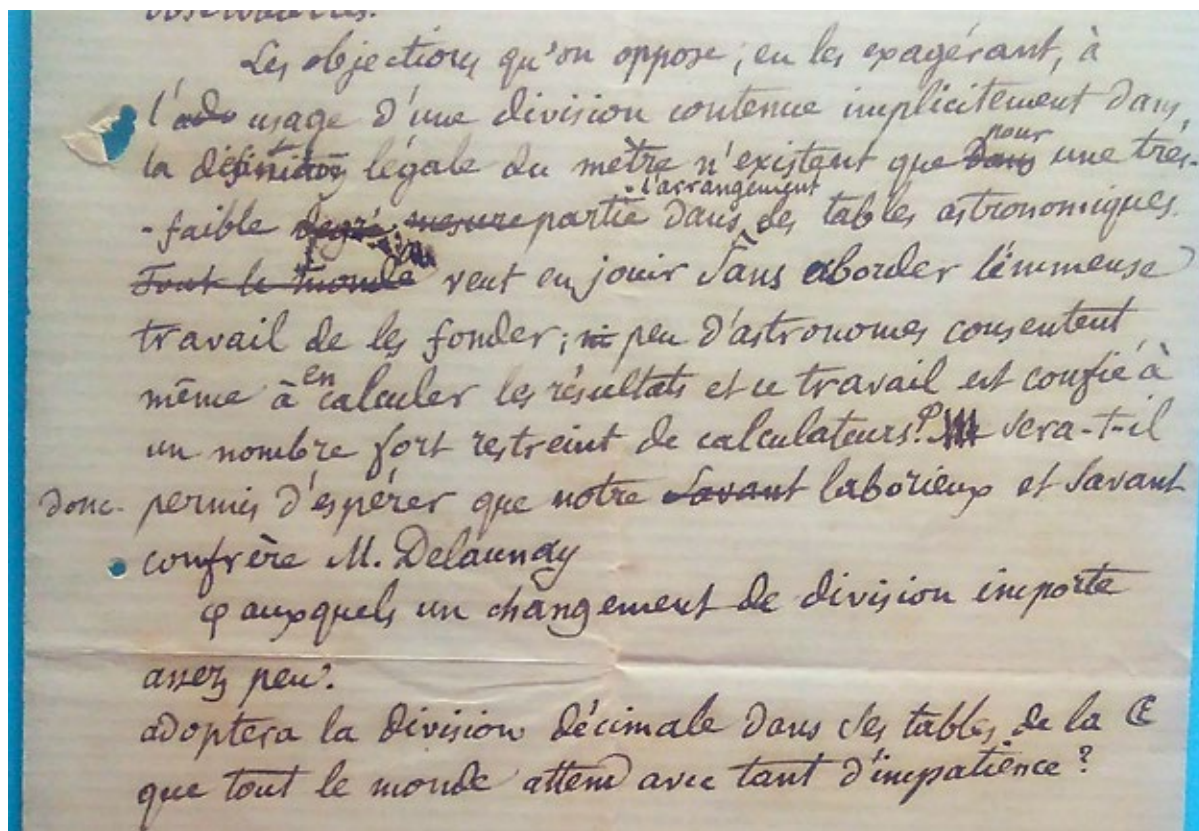 observatoires.
Les objections qu'on oppose, en les exagérant, à
l'ado usage d'une division contenue implicitement dans
la définition légale du mètre n'existent que dans pour une très-
-faible degré mesure partie dans l'arrangement des tables astronomiques.
Tout le monde veut en jouir sans aborder l'immense
travail de les fonder; ni peu d'astronomes consentent
même à en calculer les résultats et ce travail est confié à
un nombre fort restreint de calculateurs.φ sera-t-il
donc permis d'espérer que notre savant laborieux et savant
confrère M. Delaunay
φ auxquels un changement de division importe
assez peu.
adoptera la division décimale dans ses tables de la ☾
que tout le monde attend avec tant d'impatience?